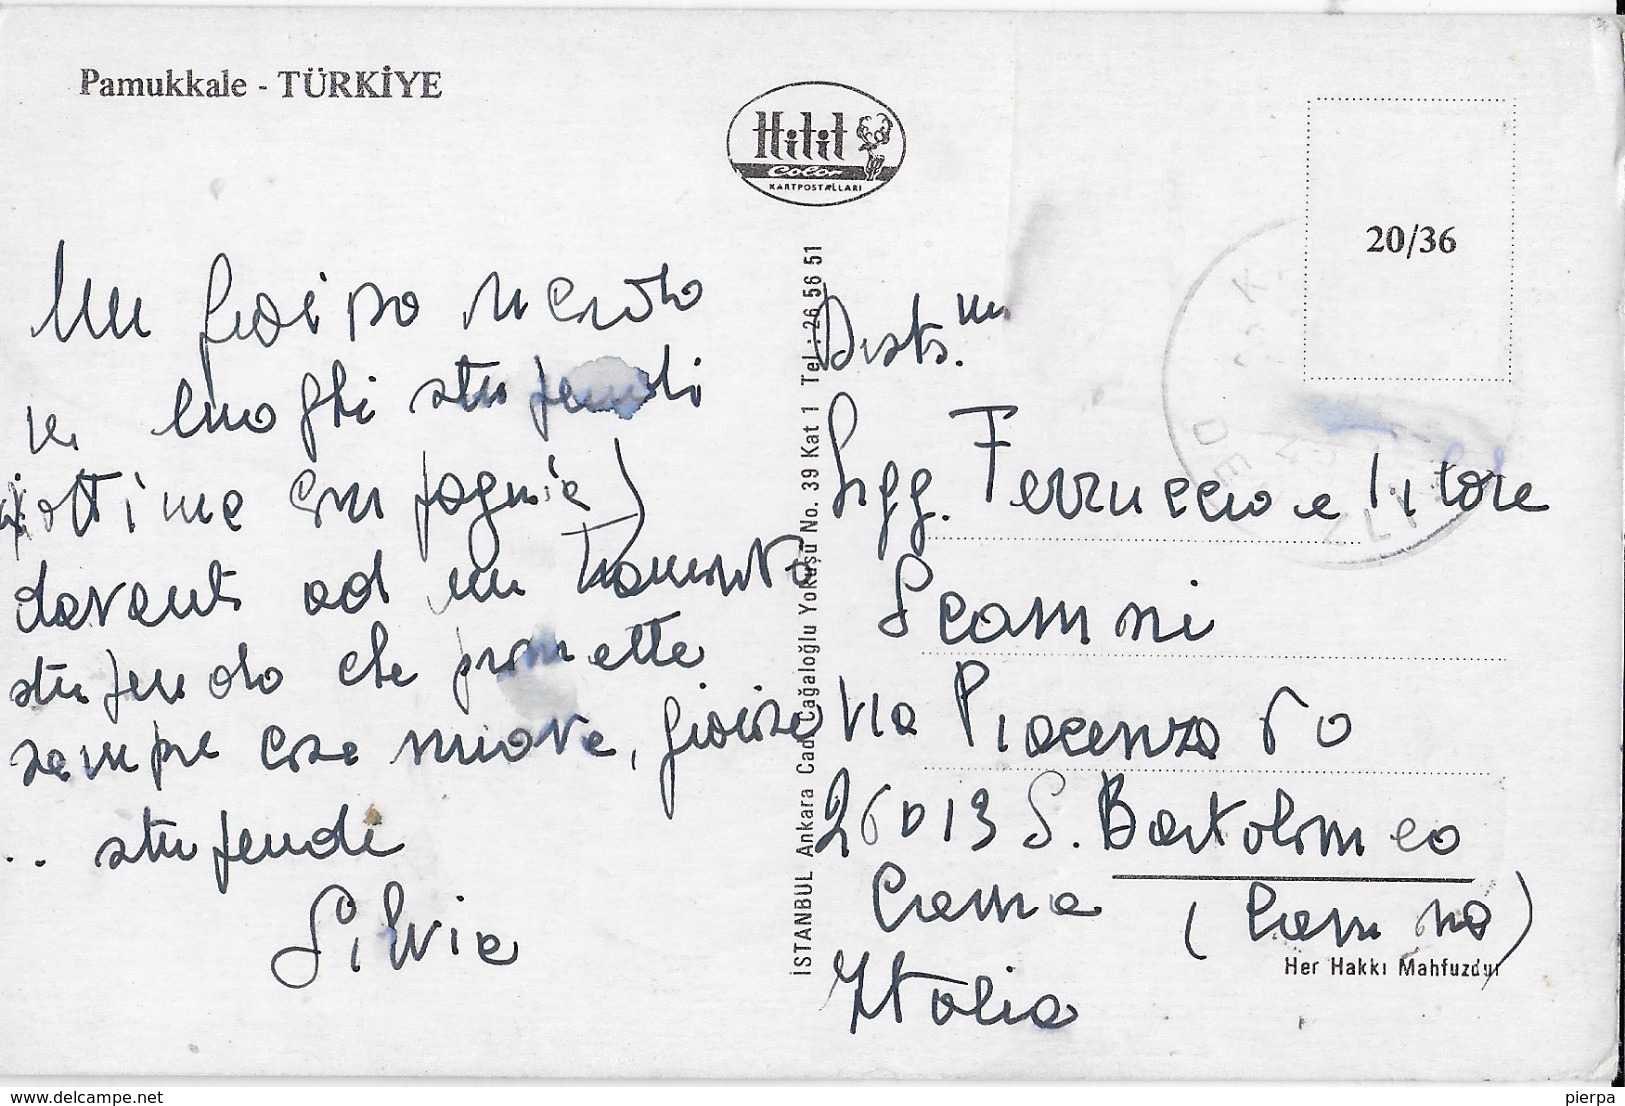 Pamukkale - TÜRKİYE
Hitit
Color
KARTPOSTALLARI
20/36
Un gioioso
in luoghi stupendi
ottima compagnia
davanti ad un tramonto
stupendo che promette
sempre cose nuove, gioiose
.. stupendi
Silvia
İSTANBUL Ankara Cad. Cağaloğlu Yokuşu No. 39 Kat 1 Tel.: 26 56 51
Sigg. Ferruccio e
Via Piacenza 60
26013 S. Bartolomeo
Crema
Italia
Her Hakkı Mahfuzdur
www.delcampe.net
pierpa